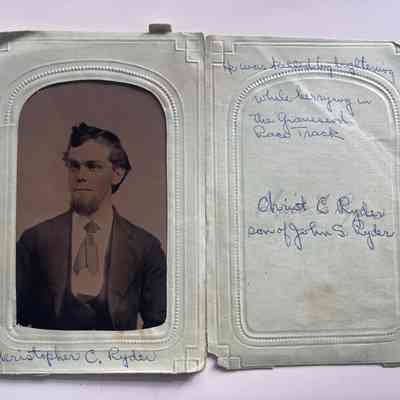 He was killed by lightening
while berrying in
the Gravesend
Race Track
Christ C Ryder
son of John S. Ryder
Christopher C. Ryder